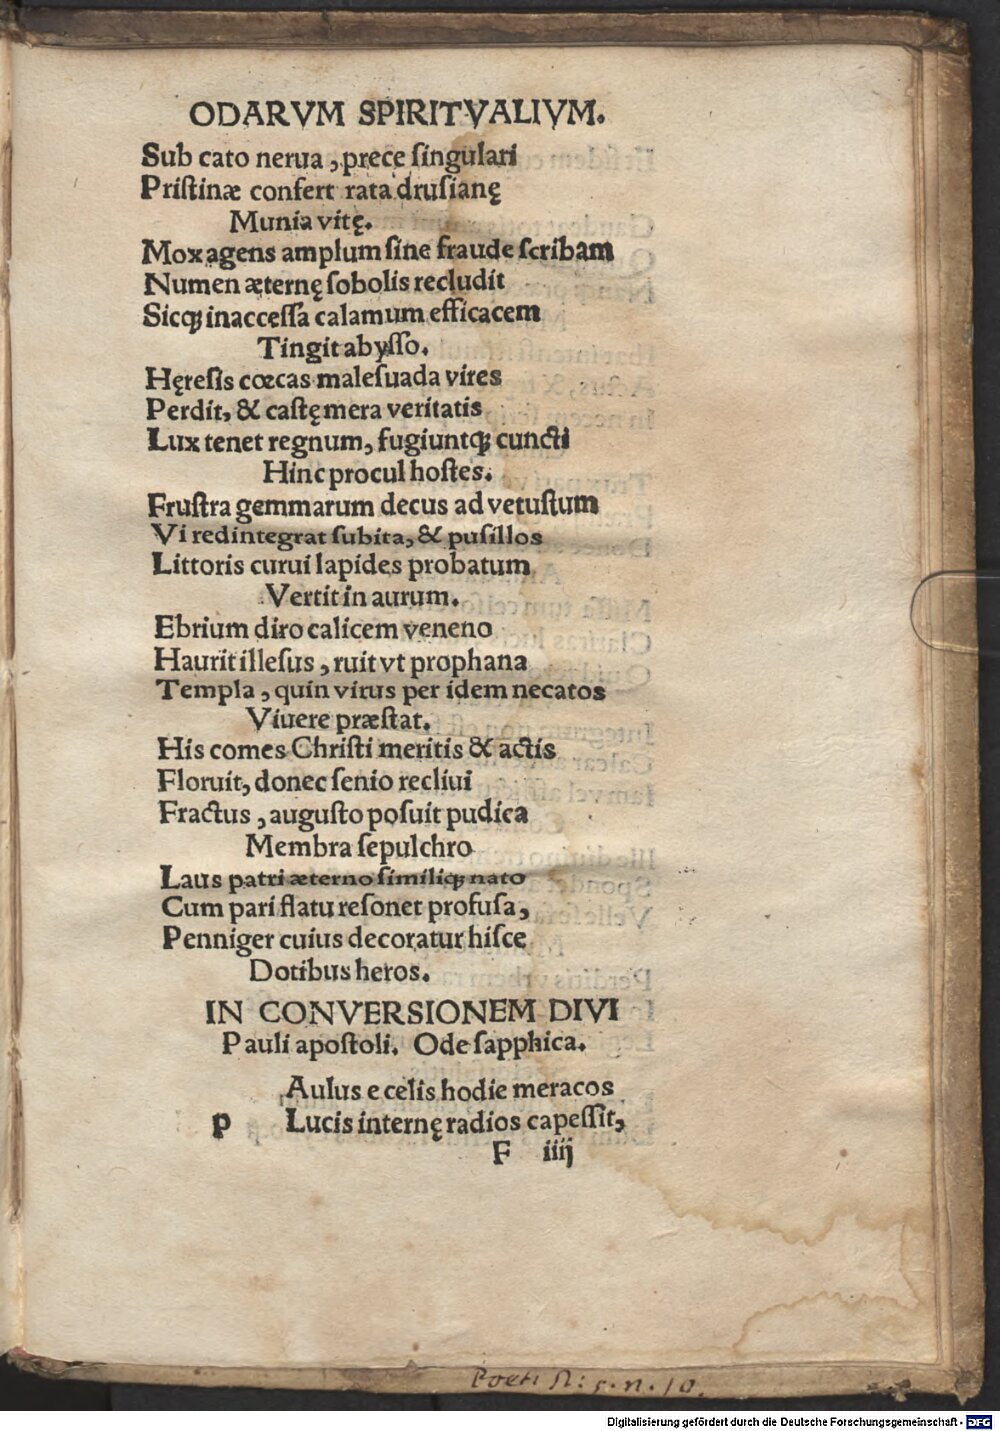 ODARVM SPIRITVALIVM.
Sub cato nerua, prece ſingulari
Priſtinæ confert rata druſianę
Munia vitę.
Mox agens amplum ſine fraude ſcribam
Numen æternę ſobolis recludit
Sicq; inacceſſa calamum efficacem
Tingit abyſſo.
Hęreſis cœcas maleſuada vires
Perdit, & caſtę mera veritatis
Lux tenet regnum, fugiuntq; cuncti
Hinc procul hoſtes.
Fruſtra gemmarum decus ad vetuſtum
Vi redintegrat ſubita, & puſillos
Littoris curui lapides probatum
Vertit in aurum.
Ebrium diro calicem veneno
Haurit illeſus, ruit vt prophana
Templa, quin virus per idem necatos
Viuere præſtat.
His comes Chriſti meritis & actis
Floruit, donec ſenio recliui
Fractus, auguſto poſuit pudica
Membra ſepulchro
Laus patri æterno ſimiliq; nato
Cum pari flatu reſonet profuſa,
Penniger cuius decoratur hiſce
Dotibus heros.
IN CONVERSIONEM DIVI
Pauli apoſtoli. Ode ſapphica.
Aulus e celis hodie meracos
p Lucis internę radios capeſſit,
F iiij
Digitalisierung gefördert durch die Deutsche Forschungsgemeinschaft - DFG